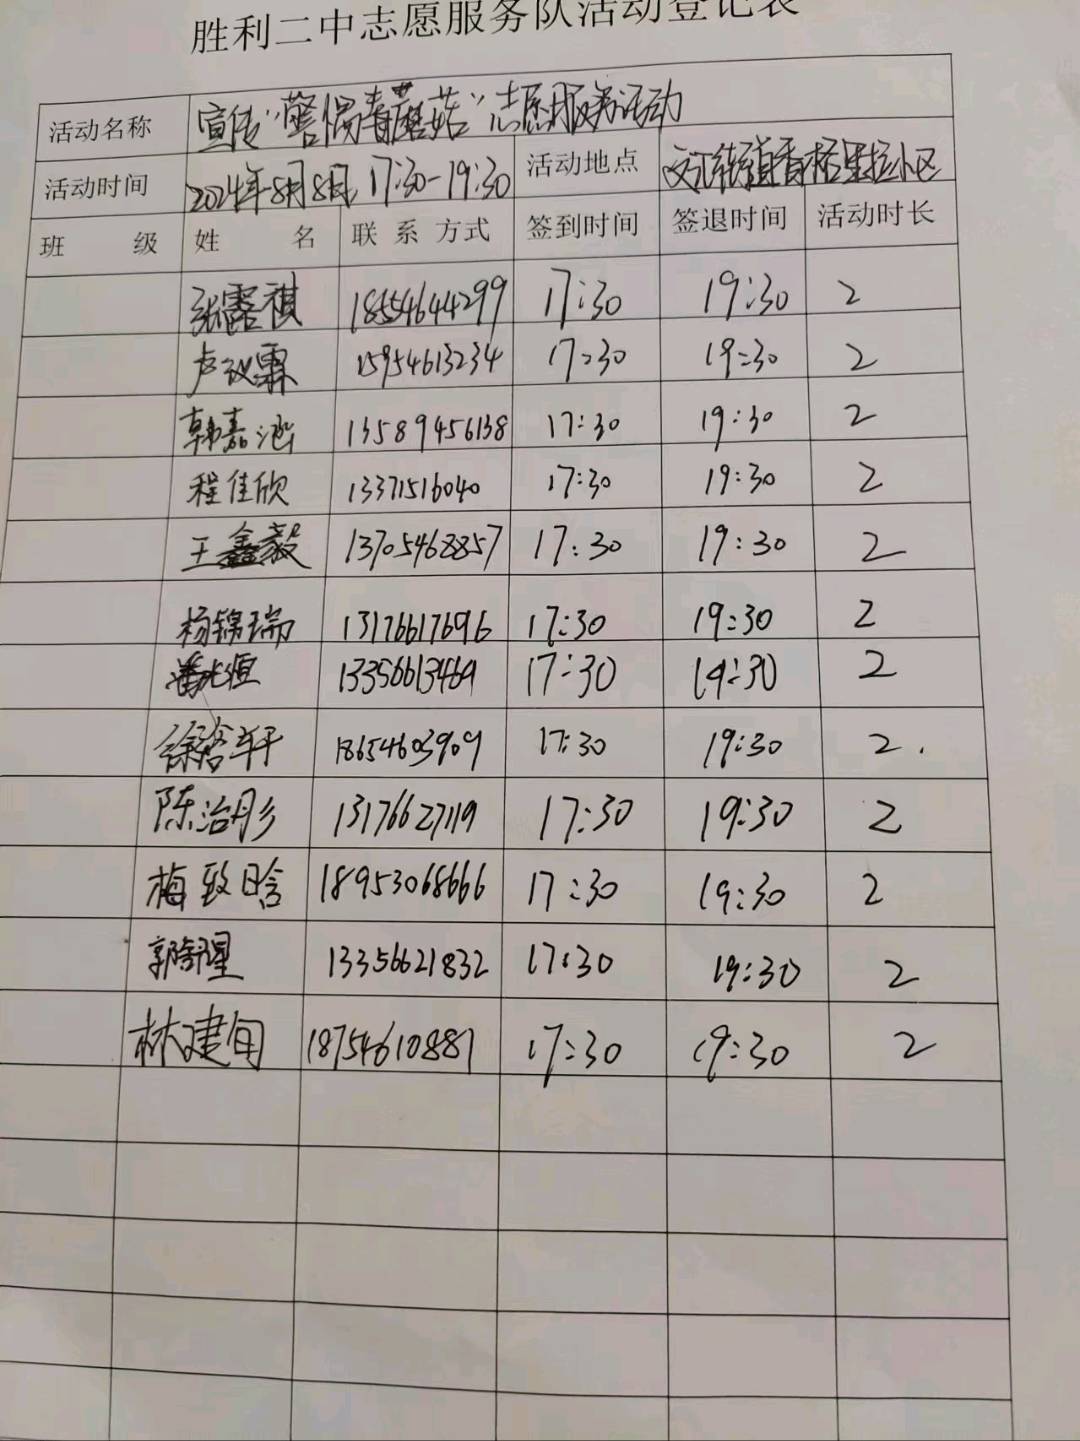 胜利二中志愿服务队活动登记表
活动名称 宣传“警惕毒蘑菇”志愿服务活动
活动时间 2024年8月8日 17:30-19:30 活动地点 文汇街道香格里拉小区
班 级 姓 名 联系方式 签到时间 签退时间 活动时长
张露祺 18554644299 17:30 19:30 2
卢议霖 15954613234 17:30 19:30 2
韩嘉涵 13589456138 17:30 19:30 2
程佳欣 13371516040 17:30 19:30 2
王鑫毅 13705468857 17:30 19:30 2
杨锦瑞 13176617696 17:30 19:30 2
13356613469 17:30 19:30 2
徐裕轩 18654603909 17:30 19:30 2.
陈治彤 13176627119 17:30 19:30 2
梅致晗 18953068666 17:30 19:30 2
郭 星 13356621832 17:30 19:30 2
林建旬 18754610881 17:30 19:30 2